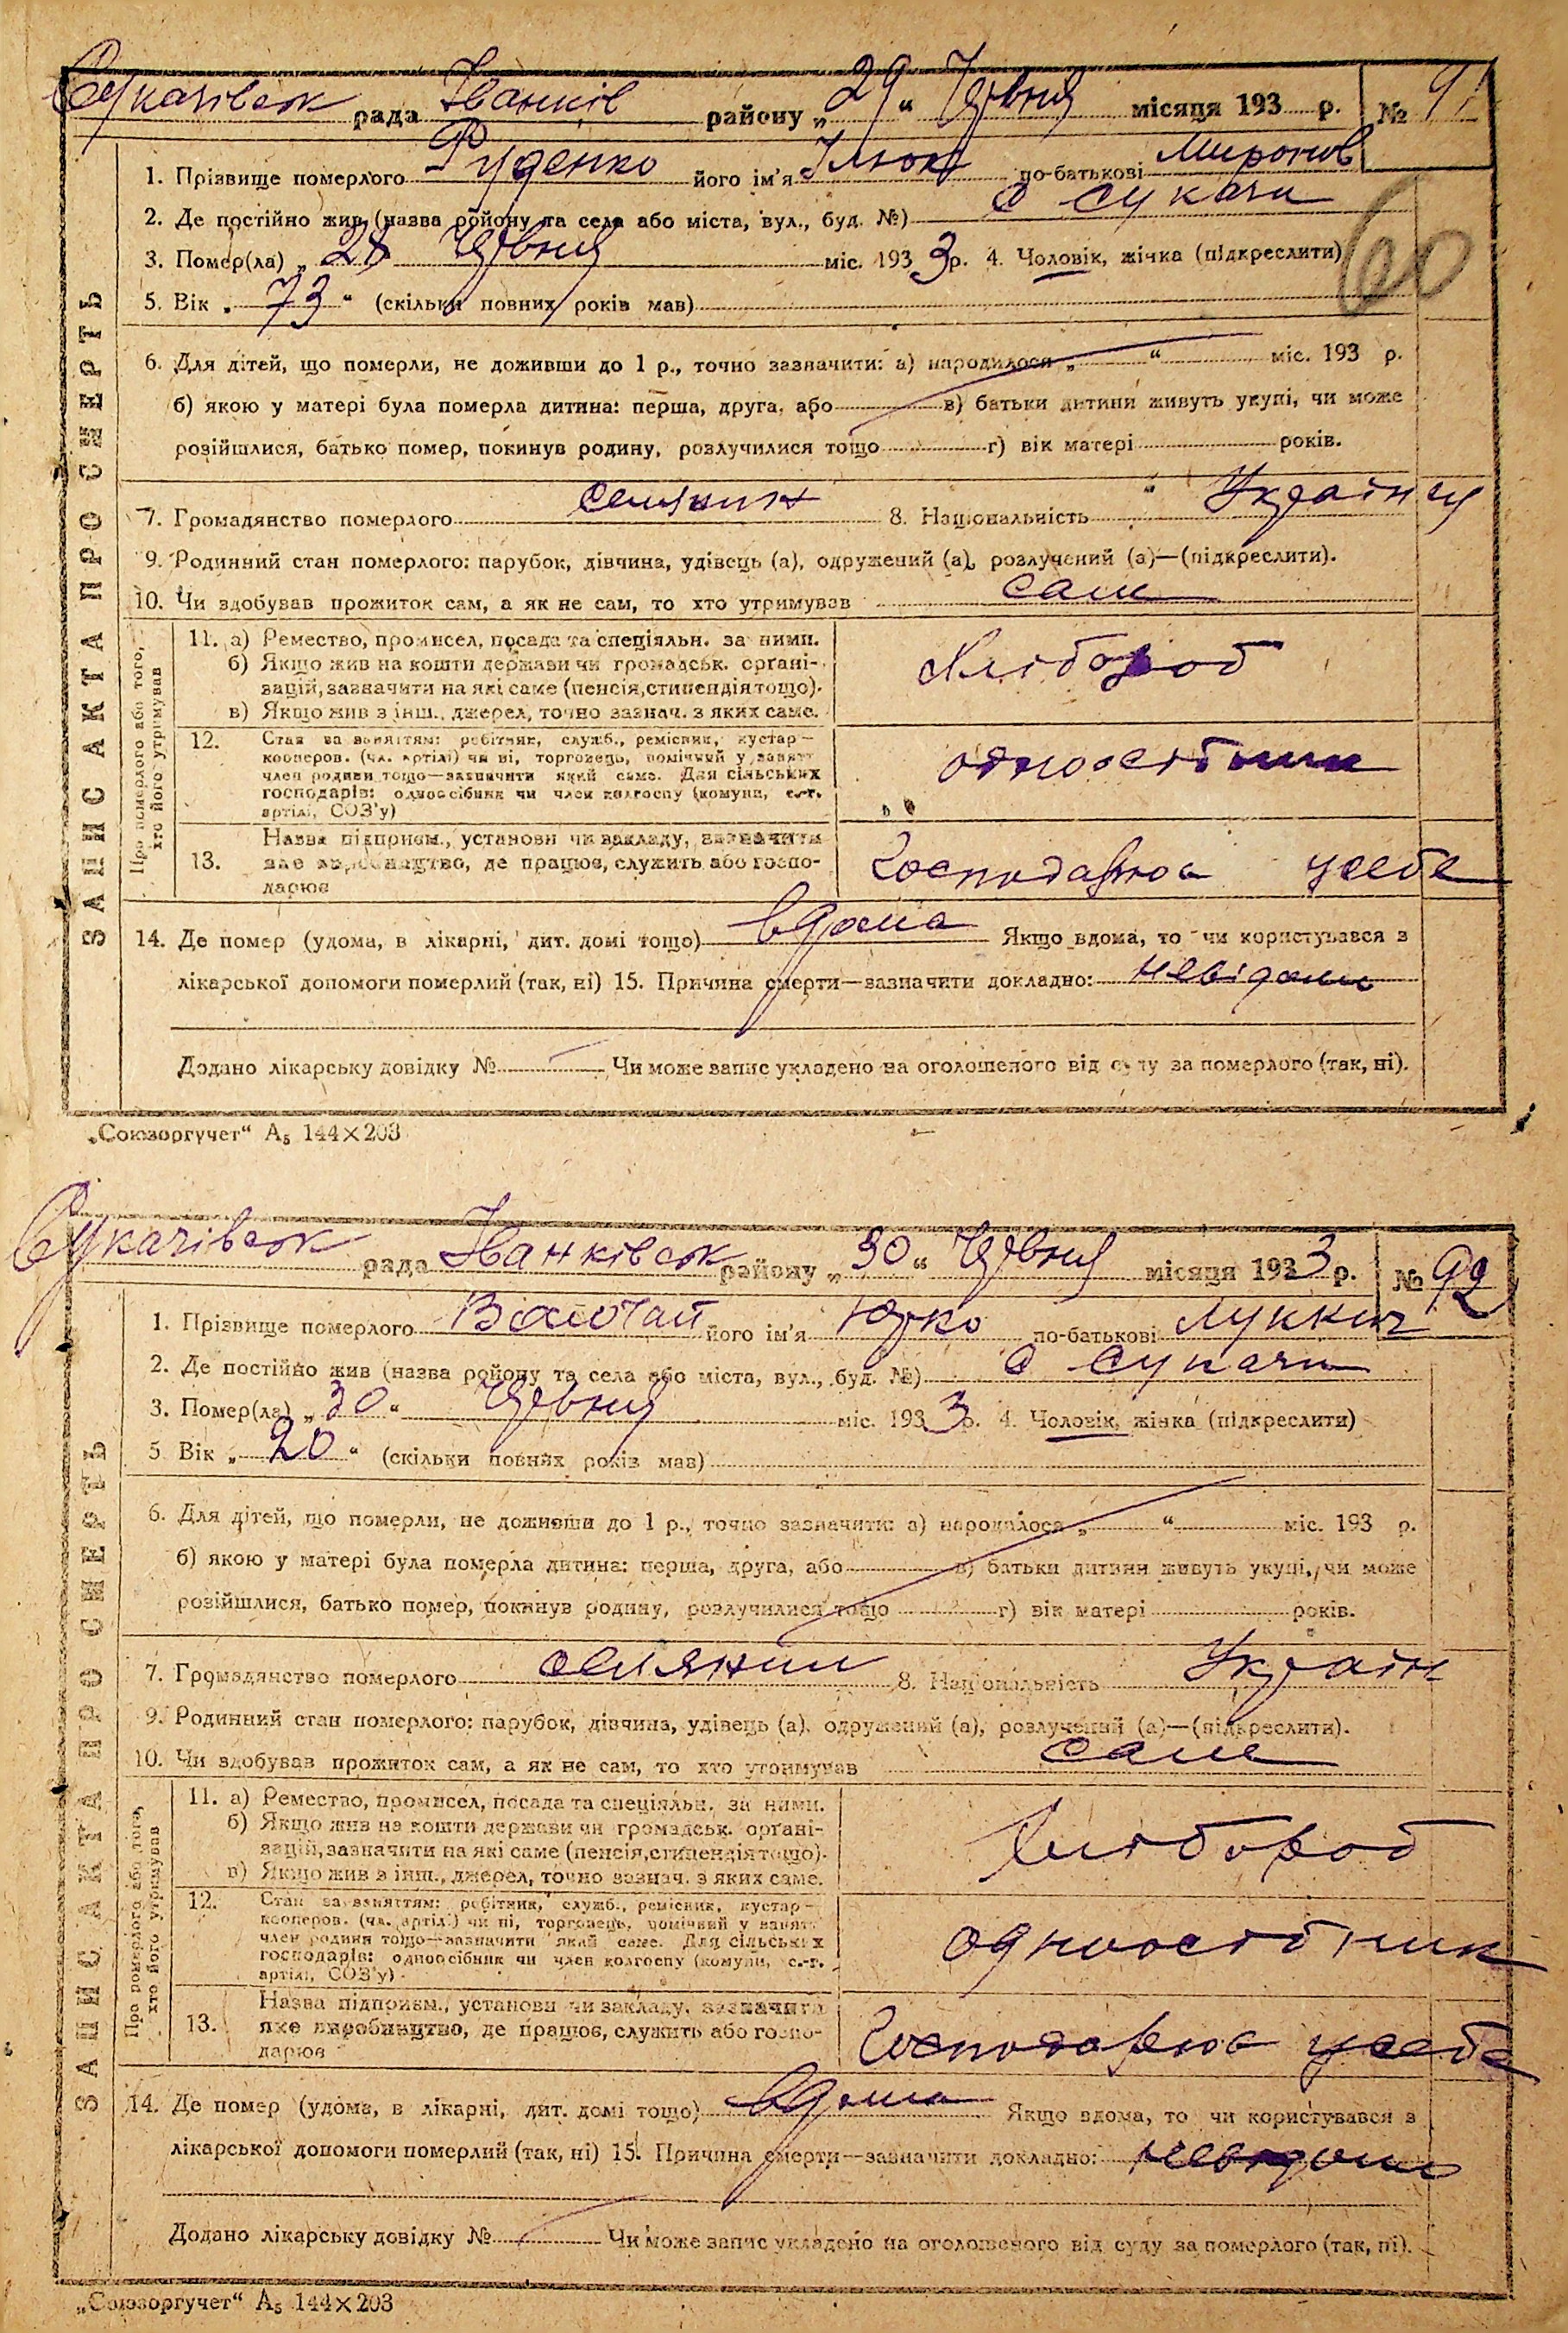 Сукачівськ рада Іванків району „29“ Червня місяця 193 р. № 91
60
ЗАПИС АКТА ПРО СМЕРТЬ
1. Прізвище померлого Руденко його ім'я по-батькові Миронов
2. Де постійно жив (назва району та села або міста, вул., буд. №) с Сукачи
3. Помер(ла) „28 Червня міс. 193 3 р. 4. Чоловік, жінка (підкреслити)
5. Вік „73“ (скільки повних років мав)
6. Для дітей, що померли, не доживши до 1 р., точно зазначити: а) народилося „ “ міс. 193 р.
б) якою у матері була померла дитина: перша, друга, або в) батьки дитини живуть укупі, чи може
розійшлися, батько помер, покинув родину, розлучилися тощо г) вік матері років.
7. Громадянство померлого селянин 8. Національність Українця
9. Родинний стан померлого: парубок, дівчина, удівець (а), одружений (а), розлучений (а)—(підкреслити).
10. Чи здобував прожиток сам, а як не сам, то хто утримував сам
Про померлого або того, хто його утримував
11. а) Ремество, промисел, посада та спеціяльн. за ними.
б) Якщо жив на кошти держави чи громадськ. орґані-
зацій, зазначити на які саме (пенсія, стипендія тощо).
в) Якщо жив з інш., джерел, точно зазнач. з яких саме.
Хлібороб
12. Стан за заняттям: робітник, служб., ремісник, кустар—
кооперов. (чл. артілі) чи ні, торговець, помічний у занятт.
член родини тощо—зазначити який саме. Для сільських
господарів: одноосібник чи член колгоспу (комуни, с.-г.
артілі, СОЗ'у)
одноосібник
13. Назва підприєм., установи чи закладу, зазначити
яке виробництво, де працює, служить або госпо-
дарює
Господарює усебе
14. Де помер (удома, в лікарні, дит. домі тощо) вдома Якщо вдома, то чи користувався з
лікарської допомоги померлий (так, ні) 15. Причина смерти—зазначити докладно: невідомо
Додано лікарську довідку № Чи може запис укладено на оголошеного від суду за померлого (так, ні).
„Союзоргучет“ А₅ 144×203
Сукачівськ рада Іванківськ району „30“ Червня місяця 193 3 р. № 92
ЗАПИС АКТА ПРО СМЕРТЬ
1. Прізвище померлого його ім'я Юрко по-батькові Луккич
2. Де постійно жив (назва району та села або міста, вул., буд. №) с Сукачи
3. Помер(ла) „30“ Червня міс. 193 3 р. 4. Чоловік, жінка (підкреслити)
5 Вік „20“ (скільки повних років мав)
6. Для дітей, що померли, не доживши до 1 р., точно зазначити: а) народилося „ “ міс. 193 р.
б) якою у матері була померла дитина: перша, друга, або в) батьки дитини живуть укупі, чи може
розійшлися, батько помер, покинув родину, розлучилися тощо г) вік матері років.
7. Громадянство померлого селянин 8. Національність Україн
9. Родинний стан померлого: парубок, дівчина, удівець (а), одружений (а), розлучений (а)—(підкреслити).
10. Чи здобував прожиток сам, а як не сам, то хто утримував сам
Про померлого або того, хто його утримував
11. а) Ремество, промисел, посада та спеціяльн. за ними.
б) Якщо жив на кошти держави чи громадськ. орґані-
зацій, зазначити на які саме (пенсія, стипендія тощо).
в) Якщо жив з інш., джерел, точно зазнач. з яких саме.
Хлібороб
12. Стан за заняттям: робітник, служб., ремісник, кустар—
кооперов. (чл. артілі) чи ні, торговець, помічний у занятт.
член родини тощо—зазначити який саме. Для сільських
господарів: одноосібник чи член колгоспу (комуни, с.-г.
артілі, СОЗ'у)
одноосібник
13. Назва підприєм., установи чи закладу, зазначити
яке виробництво, де працює, служить або госпо-
дарює
Господарює усебе
14. Де помер (удома, в лікарні, дит. домі тощо) вдома Якщо вдома, то чи користувався з
лікарської допомоги померлий (так, ні) 15. Причина смерти—зазначити докладно: невідомо
Додано лікарську довідку № Чи може запис укладено на оголошеного від суду за померлого (так, ні).
„Союзоргучет“ А₅ 144×203